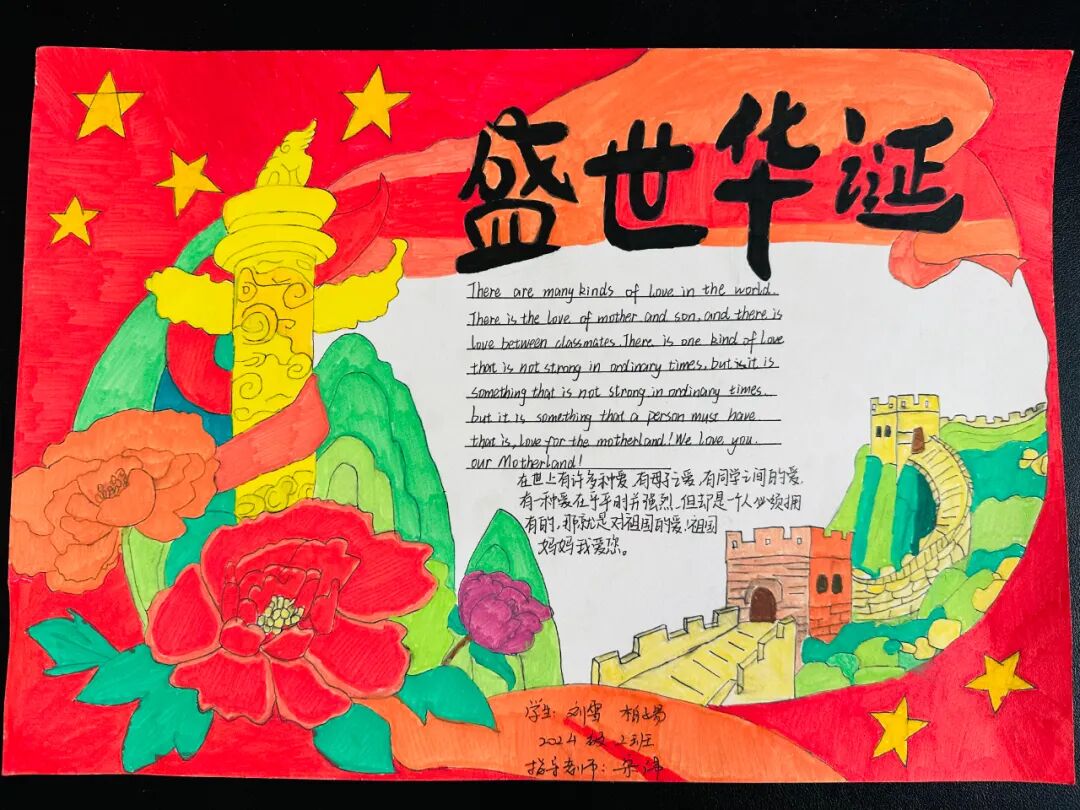 盛世华诞
There are many kinds of love in the world.
There is the love of mother and son, and there is
love between classmates. There is one kind of love
that is not strong in ordinary times, but it is
something that is not strong in ordinary times.
but it is something that a person must have
that is, love for the motherland! We love you.
our Motherland!
在世上有许多种爱,有母子之爱,有同学之间的爱,
有一种爱在乎平时并强烈,但却是一个人必须拥
有的,那就是对祖国的爱,祖国
妈妈我爱您。
学生: 刘雪
2024级 23班
指导老师: